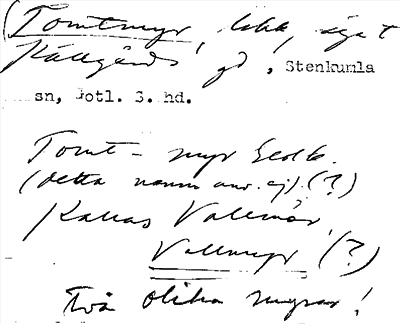 (Tomtmyr, lokk, äga t
Källgårds gd, Stenkumla
sn, Gotl. S. hd.
Tomt-myr Ekol.
(detta namn anv. ej) (?)
Kallas Vallmyr,
Vallmyr (?)
Två olika myrar!